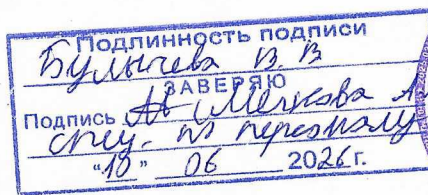 Подлинность подписи
Булычева В. В
ЗАВЕРЯЮ
Подпись (Мелкова А.
спец. по персоналу
"10" 06 2026 г.